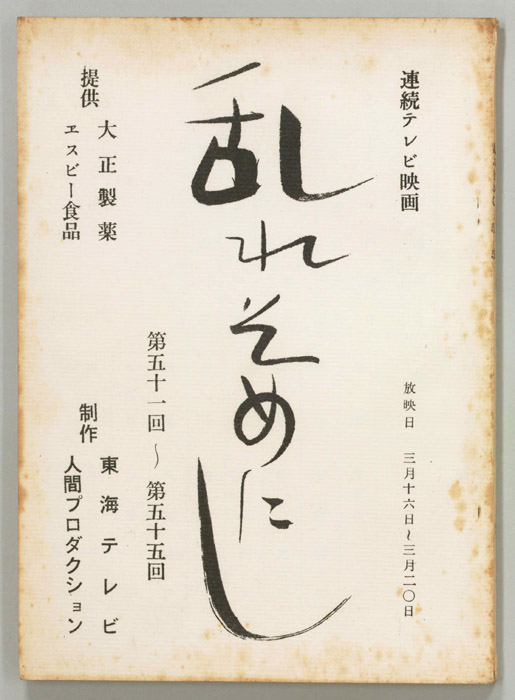 連続テレビ映画
放映日 三月十六日～三月二〇日
乱れそめにし
第五十一回～第五十五回
提供 大正製薬
エスビー食品
制作 東海テレビ
人間プロダクション